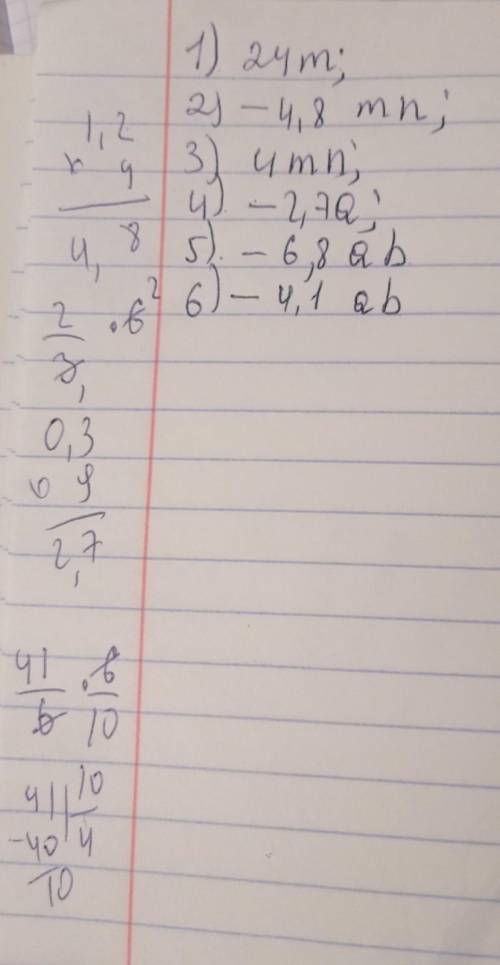 1) 24m;
2) - 4,8 mn;
3) 4mn;
4) - 2,7a;
5) - 6,8 ab
6) - 4,1 ab
1,2
x 4
4,8
2/3 · 6 2
0,3
9
2,7
41/6 · 6/10
41 | 10
-40 | 4
10